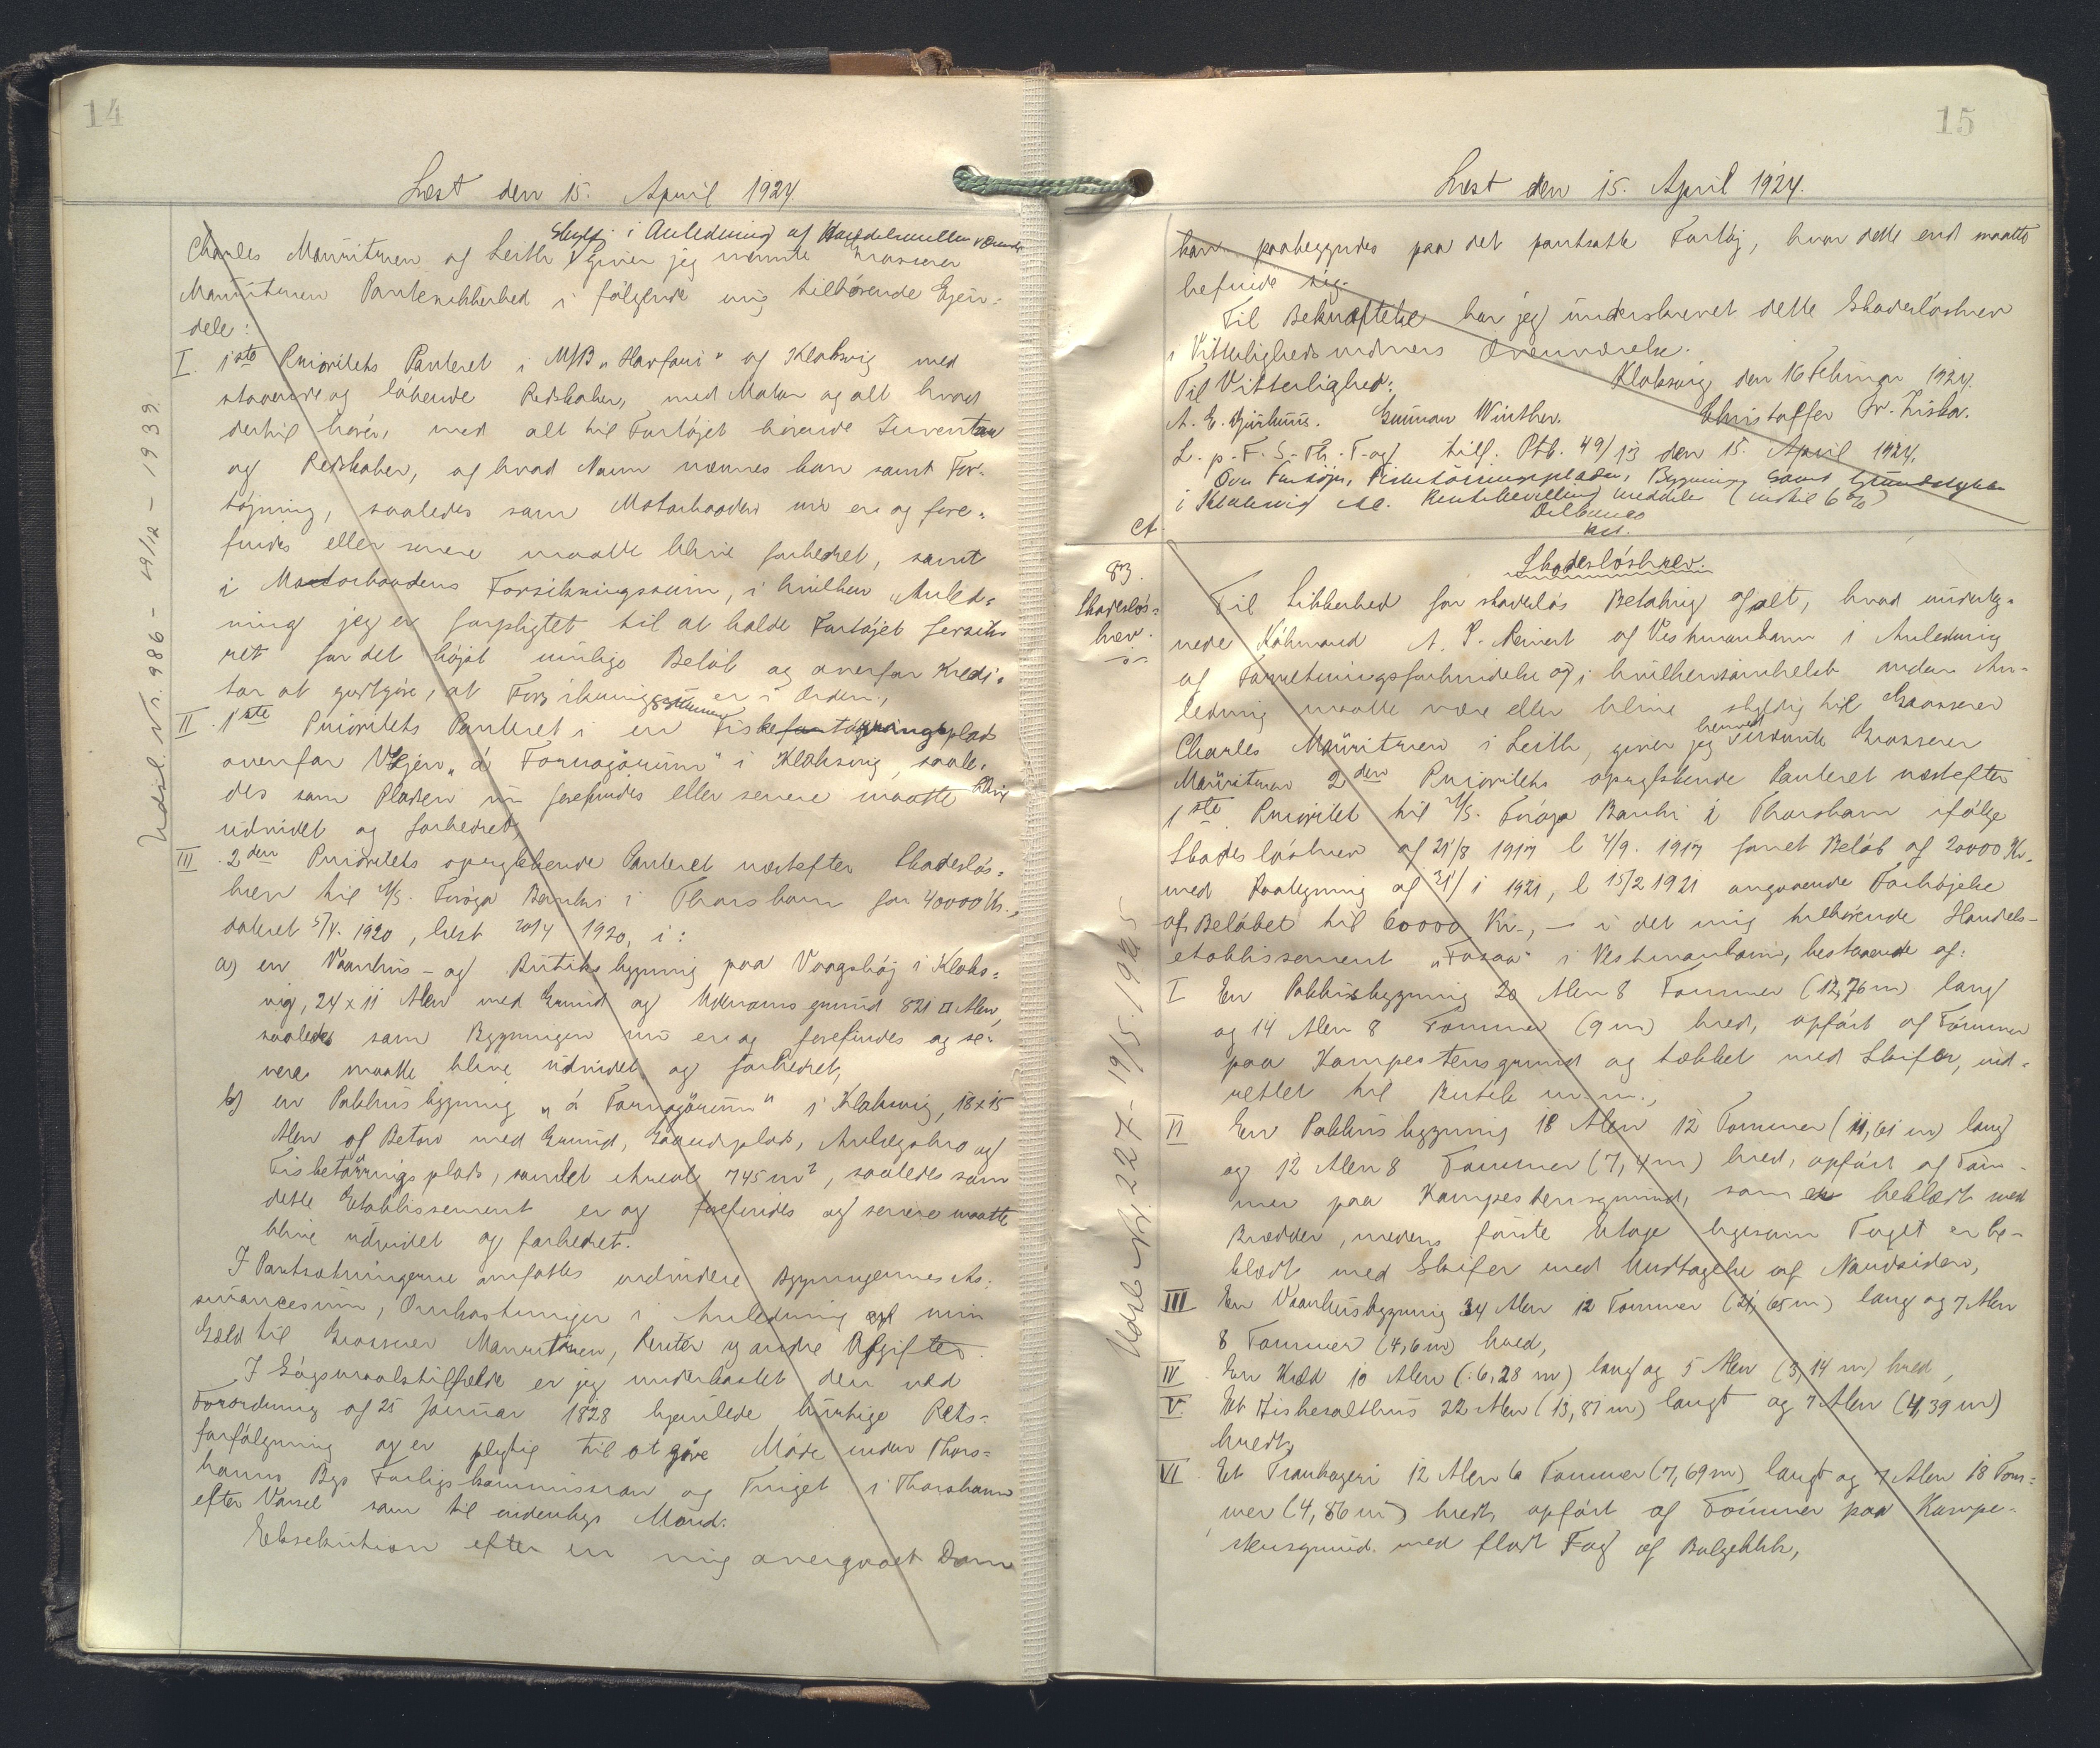 14
Læst den 15. April 1924.
Skyld i Anledning af Handelsmellemværende
Charles Mauritzen af Leith giver jeg nævnte Grosserer
Mauritzen Pantesikkerhed i følgende mig tilhørende Ejen-
dele:
I. 1ste Prioritets Panteret i M/B "Havfani" af Klaksvig med
staaende og løbende Redskaber, med Motor og alt hvad
dertil hører, med alt til Fartøjet hørende Inventar
og Redskaber, af hvad Navn nævnes kan samt For-
tøjning, saaledes som Motorbaaden nu er og fore-
findes eller senere maatte blive forbedret, samt
i Motorbaadens Forsikringssum, i hvilken Anled-
ning jeg er forpligtet til at holde Fartøjet forsik-
ret for det højst mulige Beløb og overfor Kredi-
tor at godtgøre, at Forsikringspræmien er i Orden,
II. 1ste Prioritets Panteret i en Fisketørringsplads
ovenfor Vejen "á Fornagørum" i Klaksvig, saale-
des som Pladsen nu forefindes eller senere maatte blive
udvidet og forbedret,
III. 2den Prioritets oprykkende Panteret næstefter Skadesløs-
brev til A/S. Føroya Banki i Thorshavn for 40000 Kr.,
dateret 5/4. 1920, læst 20/4 1920, i:
a) en Vaanhus- og Butiksbygning paa Vaagshøj i Klaks-
vig, 24 x 11 Alen med Grund og Udenomsgrund 821 □ Alen,
saaledes som Bygningen nu er og forefindes og se-
nere maatte blive udvidet og forbedret,
b) en Pakhusbygning "á Fornagørum" i Klaksvig, 18 x 15
Alen af Beton med Grund, Grundplads, Anlægsbro og
Fisketørringsplads, samlet Areal 745 m², saaledes som
dette Etablissement er og forefindes og senere maatte
blive udvidet og forbedret.
I Pantsætningerne omfattes endvidere Bygningernes As-
surancesum, Omkostninger i Anledning af min
Gæld til Grosserer Mauritzen, Renter og andre Afgifter.
I Søgsmaalstilfælde er jeg underkastet den ved
Forordning af 25 Januar 1828 hjemlede hurtige Rets-
forfølgning og er pligtig til at give Møde inden Thors-
havns Bys Forligskommission og Tinget i Thorshavn
efter Varsel som til indenbys Mand.
Eksekution efter en mig overgaaet Dom
Udsl. Nr. 986 - 29/12 - 1939.
15
Læst den 15. April 1924.
kan paabegyndes paa det pantsatte Fartøj, hvor dette end maatte
befinde sig.
Til Bekræftelse har jeg underskrevet dette Skadesløsbrev
i Vitterlighedsvidners Overværelse.
Klaksvig den 16 Februar 1924.
Til Vitterlighed:
Christoffer Fr. Kisba.
A. E. Djurhuus. Gunnar Winther.
L. p. F. S. Th. F. og till. Ptb. 49/13 den 15. April 1924.
Over Fartøjer, Fisketørringspladser, Bygninger samt Grundstykke
i Klaksvig etc. Rentebevilling meddelt (indtil 6 %)
Ct.
83.
Skadesløs-
brev.
Skadesløsbrev.
Til Sikkerhed for skadesløs Betaling af alt, hvad underteg-
nede Købmand A. P. Reinert af Vestmanhavn i Anledning
af Forretningsforbindelse og i hvilkensomhelst anden An-
ledning maatte være eller blive skyldig til Grosserer
Charles Mauritzen i Leith, giver jeg herved nævnte Grosserer
Mauritzen 2den Prioritets oprykkende Panteret næstefter
1ste Prioritet til A/S. Føroya Banki i Thorshavn ifølge
Skadesløsbrev af 21/8 1917 l 4/9. 1917 for et Beløb af 20000 Kr.
med Paategning af 31/1 1921, l 15/2 1921 angaaende Forhøjelse
af Beløbet til 60000 Kr., - i det mig tilhørende Handels-
etablissement "Fossaa" i Vestmanhavn, bestaaende af:
I En Pakhusbygning 20 Alen 8 Tommer (12,76 m) lang
og 14 Alen 8 Tommer (9 m) bred, opført af Tømmer
paa Kampestensgrund og tækket med Skifer, ind-
rettet til Butik m. m.,
II En Pakhusbygning 18 Alen 12 Tommer (11,61 m) lang
og 12 Alen 8 Tommer (7,4 m) bred, opført af Tøm-
mer paa Kampestensgrund, som er beklædt med
Brædder, medens første Etage ligesom Taget er be-
klædt med Skifer med Undtagelse af Nordsiden,
III En Vaanhusbygning 34 Alen 12 Tommer (21,65 m) lang og 7 Alen
8 Tommer (4,6 m) bred,
IV En Hæld 10 Alen (6,28 m) lang og 5 Alen (3,14 m) bred,
V. Et Fiskesalthus 22 Alen (13,81 m) langt og 7 Alen (4,39 m)
bredt,
VI. Et Trankogeri 12 Alen 6 Tommer (7,69 m) langt og 7 Alen 18 Tom-
mer (4,86 m) bredt, opført af Tømmer paa Kampe-
stensgrund med fladt Tag af Bølgeblik,
Udsl Nr. 227 - 19/5. 1925